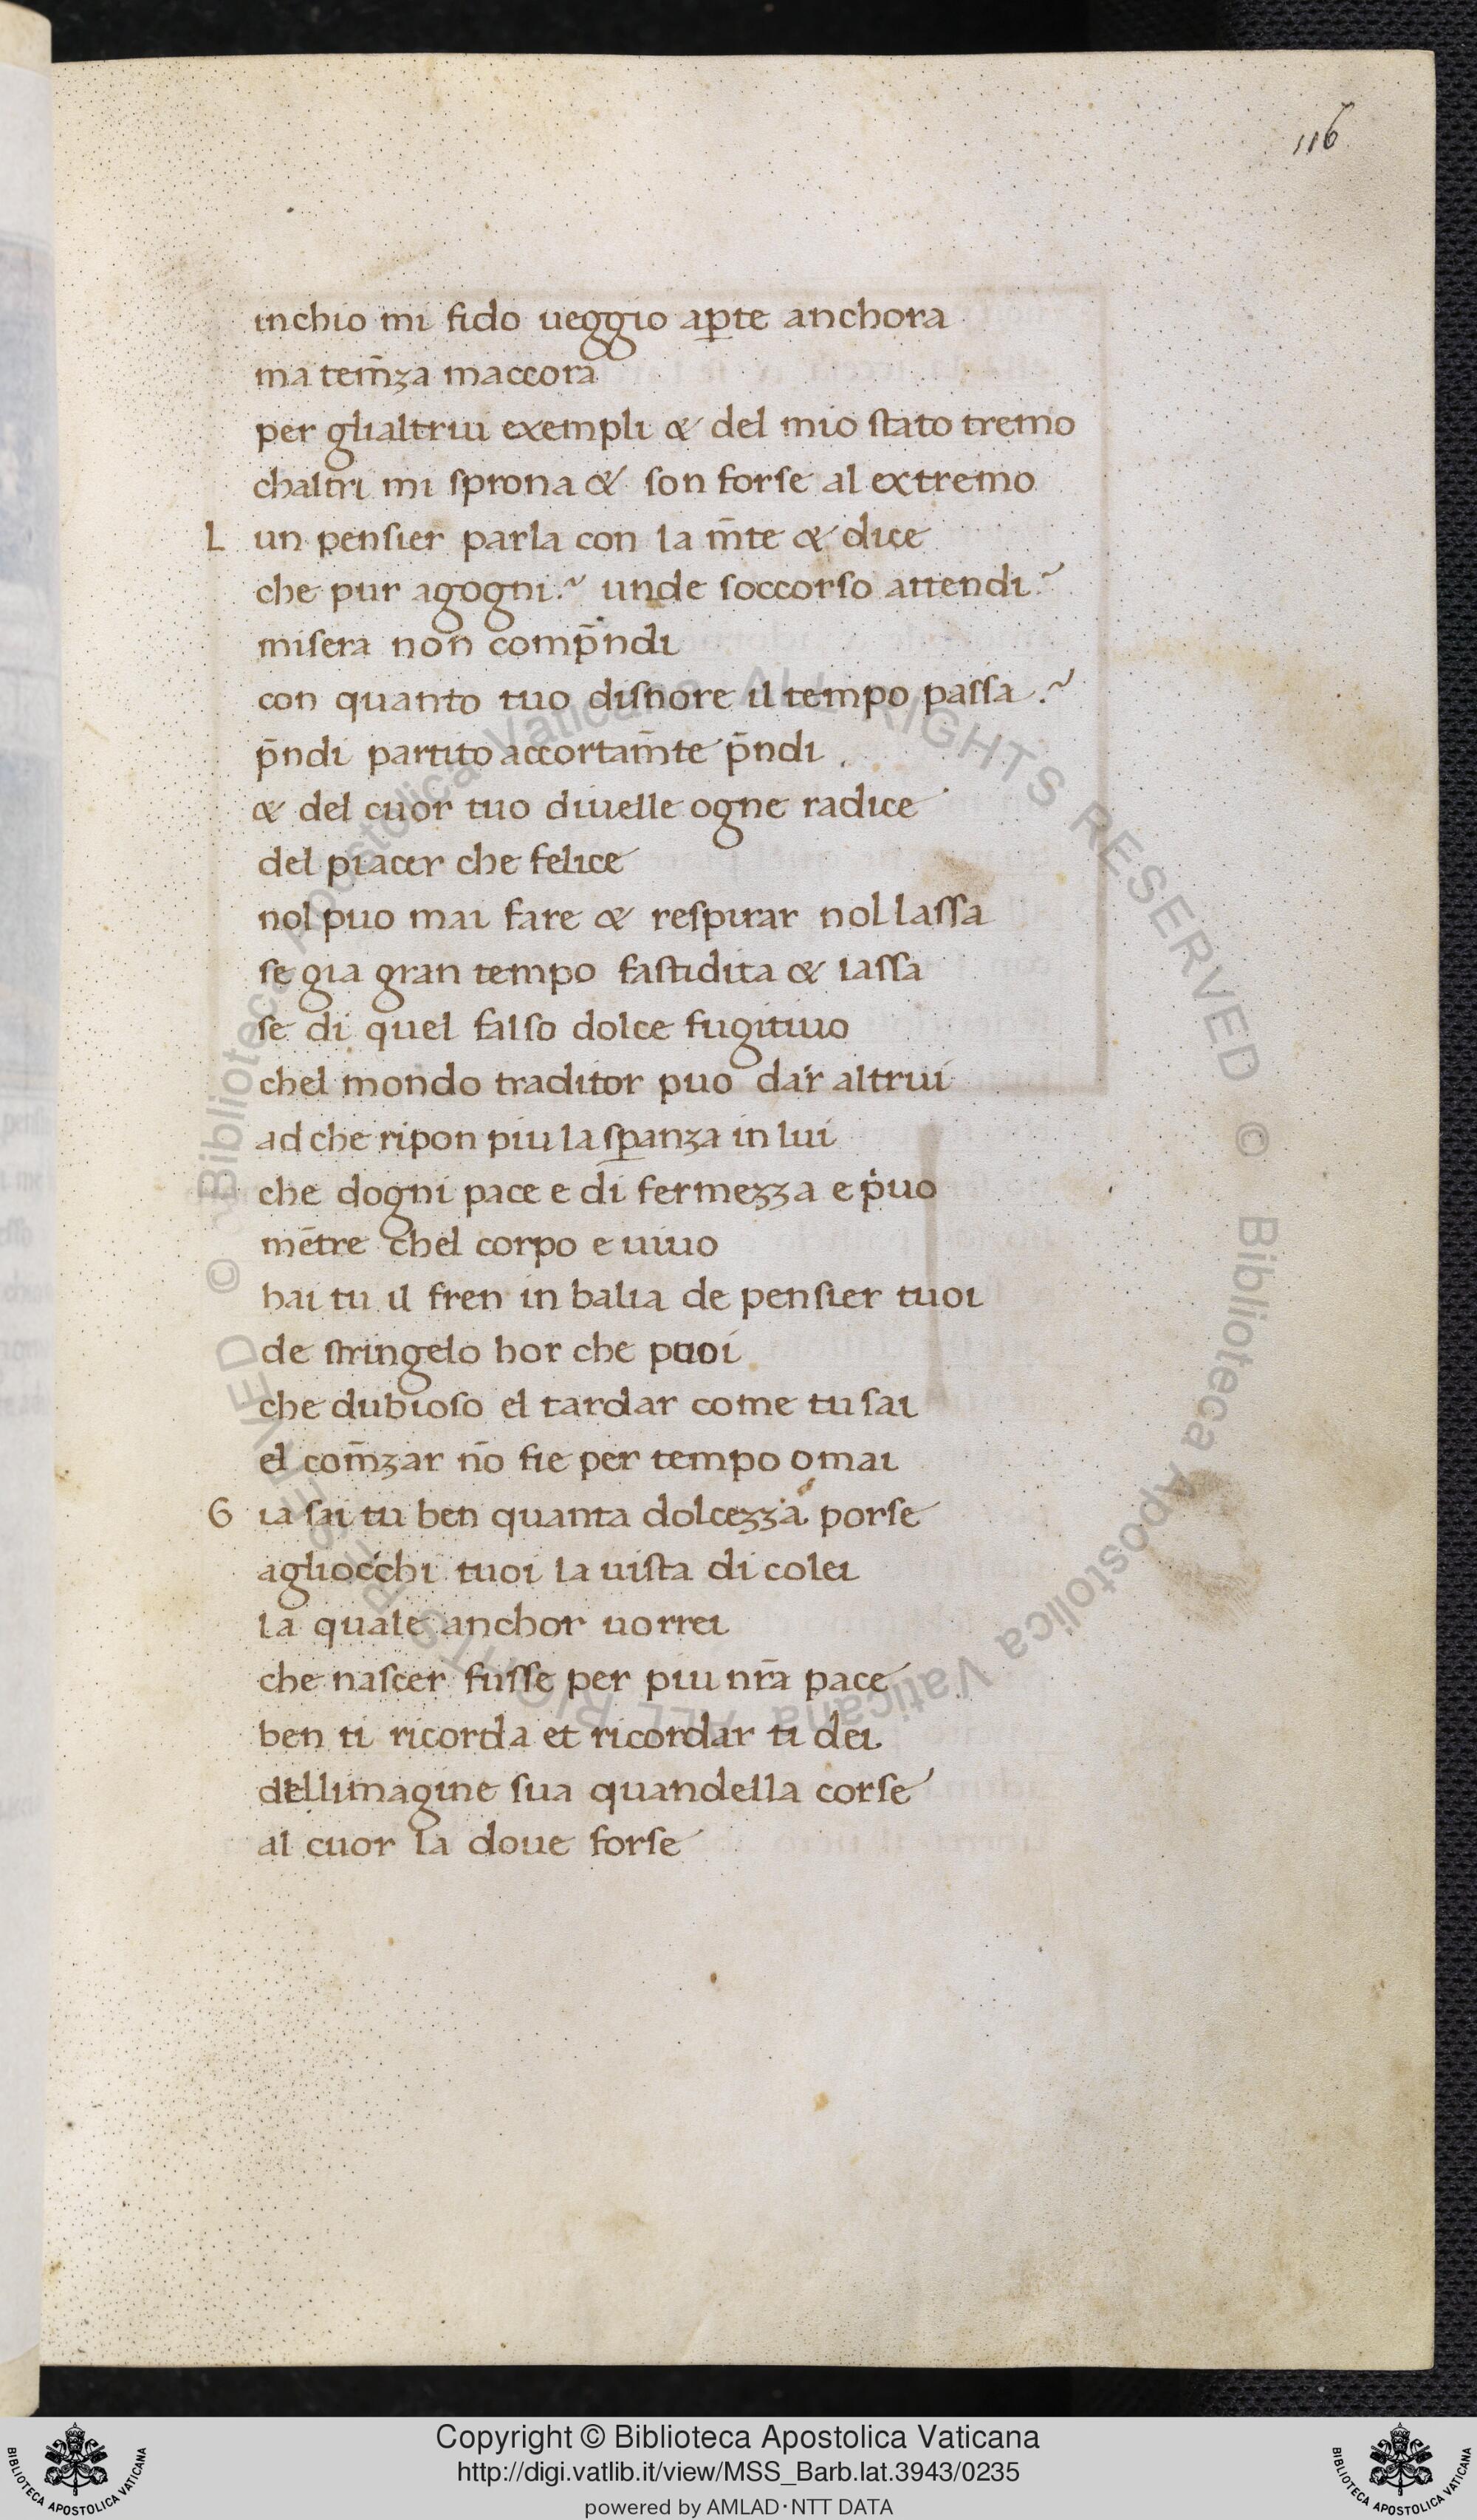 116
inchio mi fido ueggio aꝑte anchora
ma tem̄za maccora
per glialtrui exempli & del mio stato tremo
chaltri mi sprona & son forse al extremo
L un pensier parla con la m̄te & dice
che pur agogni? unde soccorso attendi?
misera non comp̄ndi
con quanto tuo disnore il tempo passa?
p̄ndi partito accortam̄te p̄ndi.
& del cuor tuo diuelle ogne radice
del piacer che felice
nol puo mai fare & respirar nol lassa
se gia gran tempo fastidita & lassa
se di quel falso dolce fugitiuo
chel mondo traditor puo dar altrui
ad che ripon piu la sꝑanza in lui
che dogni pace e di fermezza e pͥuo
mētre chel corpo e uiuo
hai tu il fren in balia de pensier tuoi
de stringelo hor che puoi
che dubioso el tardar come tu sai
el com̄zar nō fie per tempo omai
G ia sai tu ben quanta dolcezza porse
agliocchi tuoi la uista di colei
la quale anchor uorrei
che nascer fusse per piu nr̄a pace
ben ti ricorda et ricordar ti dei
dellimagine sua quandella corse
al cuor la doue forse
© Biblioteca Apostolica Vaticana ALL RIGHTS RESERVED © Biblioteca Apostolica Vaticana ALL RIGHTS RESERVED
Copyright © Biblioteca Apostolica Vaticana
http://digi.vatlib.it/view/MSS_Barb.lat.3943/0235
powered by AMLAD·NTT DATA
BIBLIOTECA APOSTOLICA VATICANA
BIBLIOTECA APOSTOLICA VATICANA